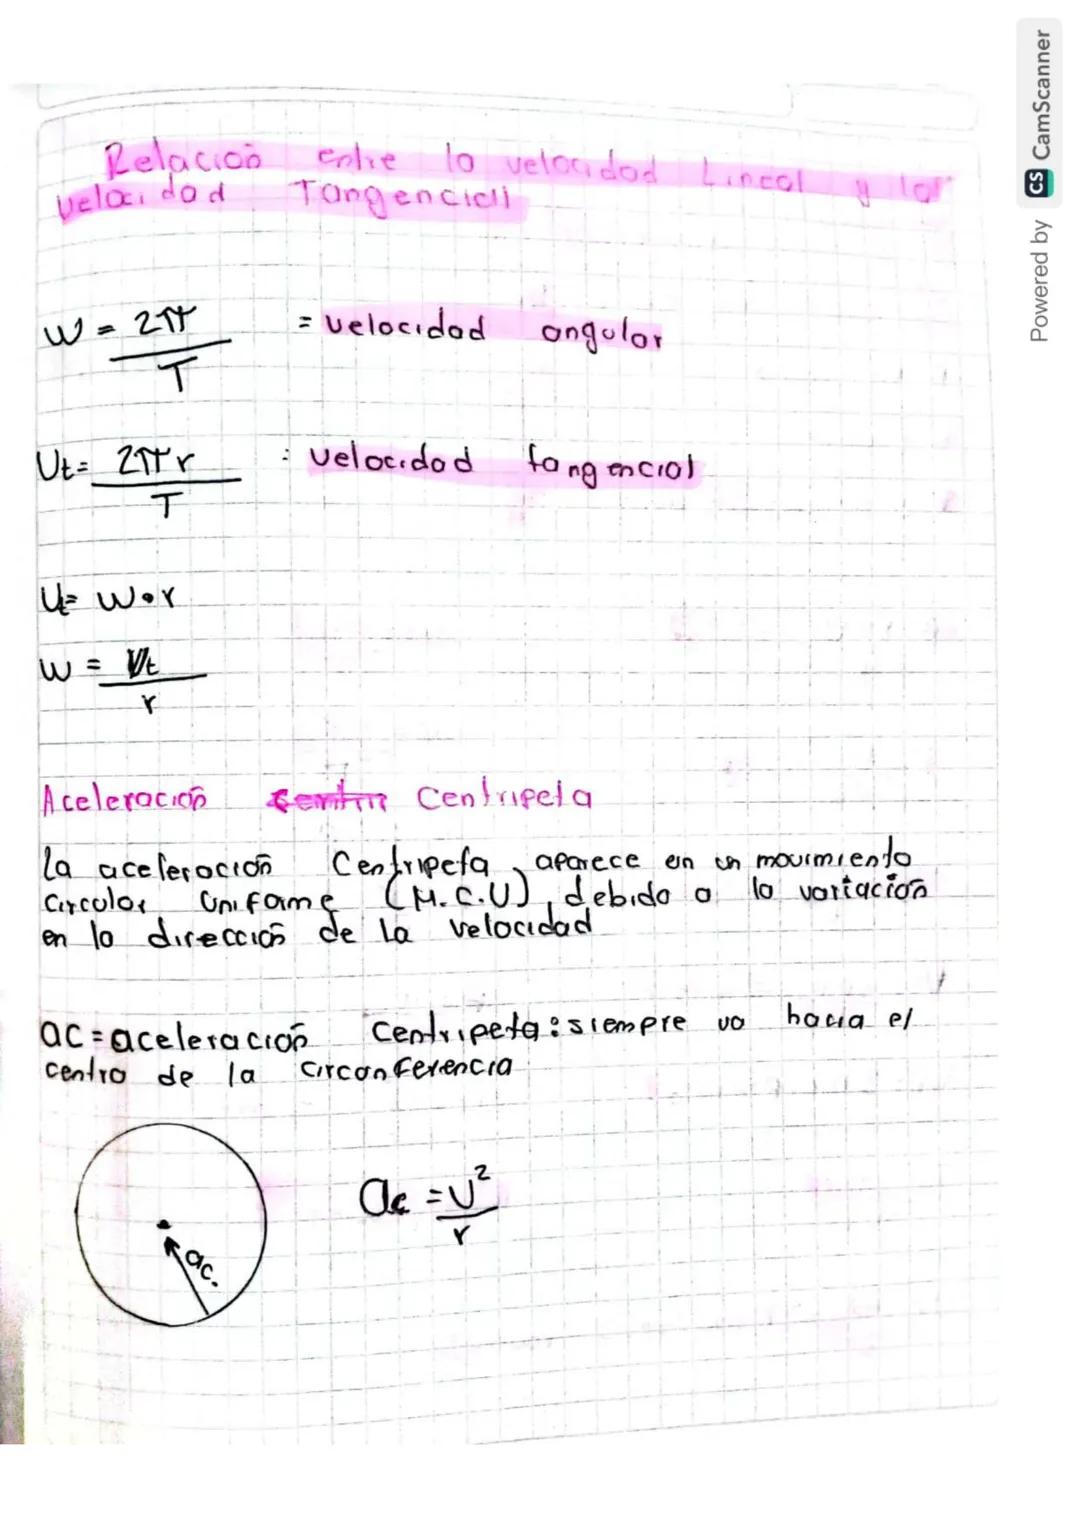 Relación entre la velocidad Lineal y la
velocidad Tangencial
W = 2π = velocidad angular
T
Vt = 2πr : velocidad tangencial
T
Vt = W•r
W = Vt
r
Aceleración Centripeta
La aceleración Centripeta, aparece en un movimiento
circular Uniforme (M.C.U), debido a la variación
en la dirección de la velocidad
ac = aceleración Centripeta: siempre va hacia el
centro de la circonferencia
ac.
ac = v²
r
Powered by CS CamScanner